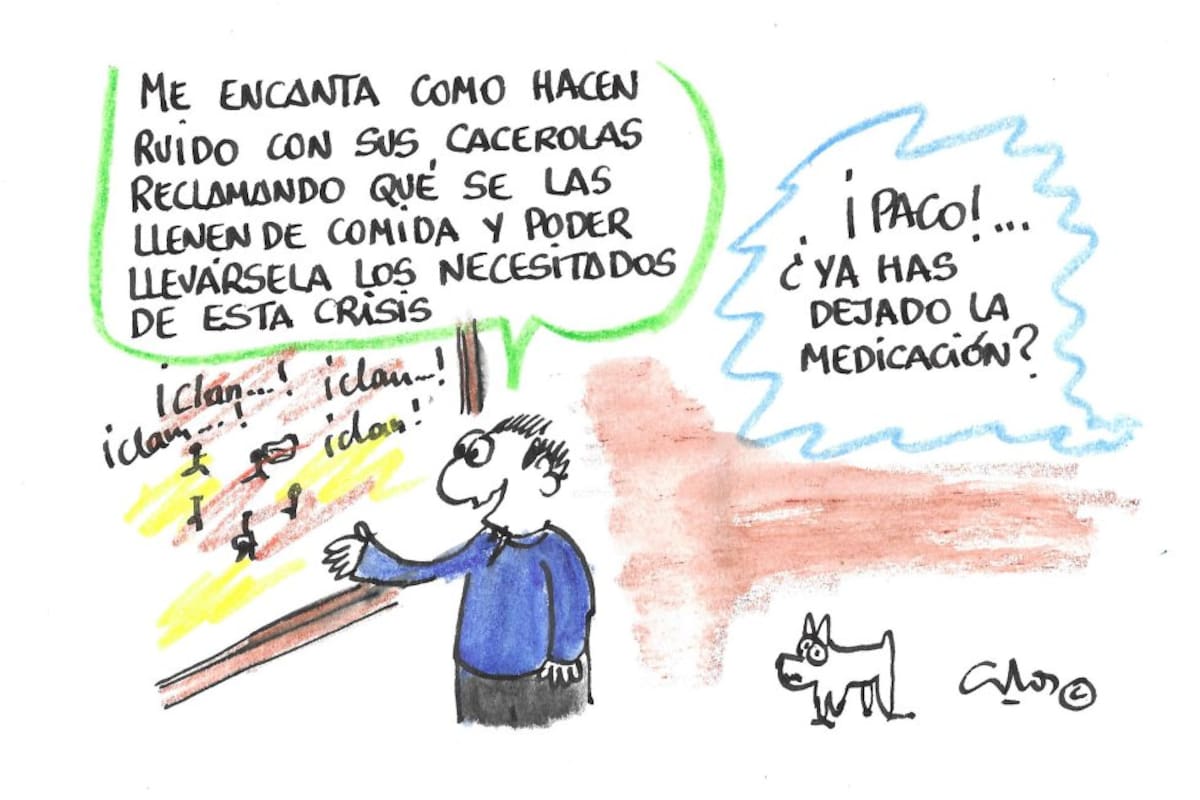 ME ENCANTA COMO HACEN
RUIDO CON SUS CACEROLAS
RECLAMANDO QUÉ SE LAS
LLENEN DE COMIDA Y PODER
LLEVÁRSELA LOS NECESITADOS
DE ESTA CRISIS
¡PACO!...
¿YA HAS
DEJADO LA
MEDICACIÓN?
¡clan...! ¡clan...!
¡clan...! ¡clan!
©